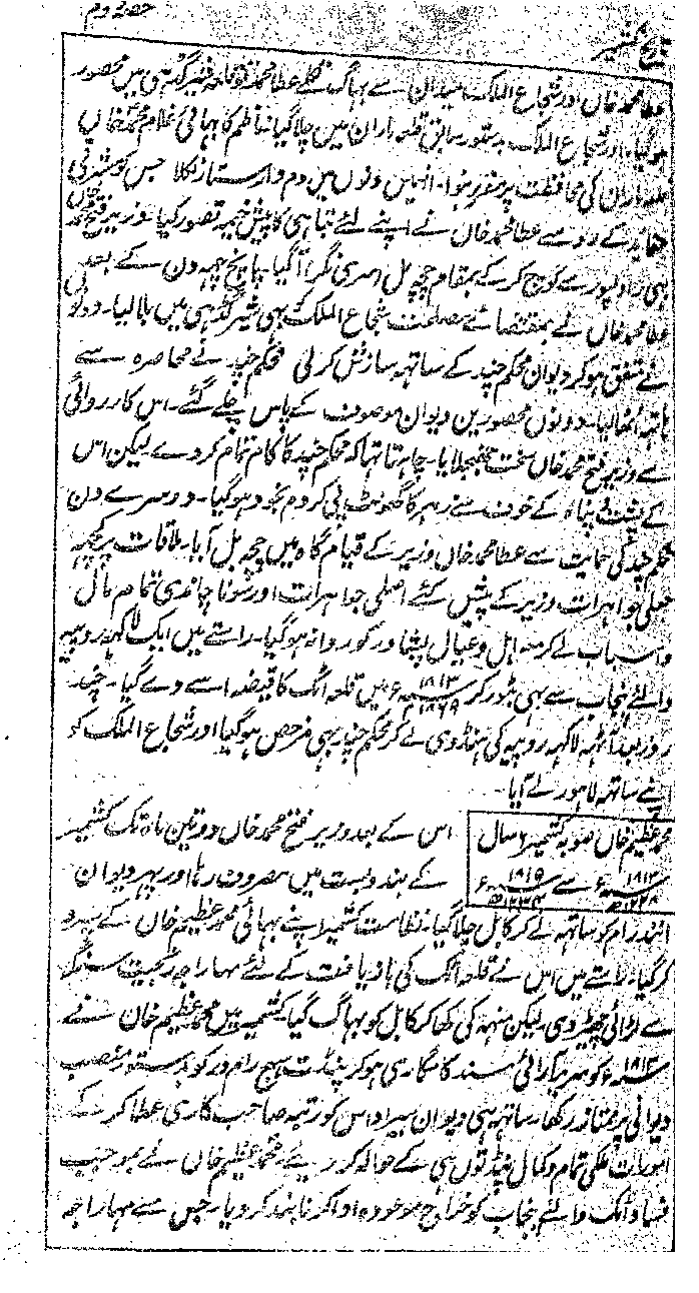 حصہ دوم
تاریخ کشمیر
عطا محمد خاں اور شجاع الملک میدان سے بہاگ نکلے عطا محمد خاں قلعہ شیر گڈہی میں محصور
ہو گیا۔ اور شجاع الملک بدستور سابق قلعہ ماران میں چلا گیا۔ ناظم کا بہائی غلام محمد خاں
قلعہ ماران کی محافظت پر مقرر ہوا۔ انہیں دنوں میں دم دار ستارہ نکلا جس کو مشرقی
عقاید کے رو سے عطا محمد خاں نے اپنے لئے تباہی کا پیش خیمہ تصور کیا۔ وزیر فتح محمد خاں
بہی سے کوچ کر کے بمقام چچہ پل سری نگر آ گیا۔ پانچ چہہ دن کے بعد
عطا محمد خاں نے بمقتضائے مصلحت شجاع الملک کو بہی شیر گڈہی میں بلا لیا۔ دونوں
نے متفق ہو کر دیوان محکم چند کے ساتہہ سازش کر لی محکم چند نے محاصرہ سے
ہاتہہ اٹھا لیا۔ دونوں محصورین دیوان موصوف کے پاس چلے گئے۔ اس کارروائی
سے وزیر فتح محمد خاں سخت جھنجھلایا۔ چاہتا تہا کہ محکم چند کا کام تمام کر دے لیکن اس
کے پشت پناہ کے خوف سے زہر کا گھونٹ پی کر دم بخود ہو گیا۔ دوسرے دن
محکم چند کی حمایت سے عطا محمد خاں وزیر کے قیام گاہ میں چچہ پل آیا۔ ملاقات پر کچہہ
جعلی جواہرات وزیر کے پیش کئے اصلی جواہرات اور سونا چاندی تمام مال
واسباب لے کر معہ اہل وعیال پشاور کو روانہ ہو گیا۔ راستے میں ایک لاکہہ روپیہ
والئے پنجاب سے بہی بٹور کر ۱۸۱۳ء میں قلعہ اٹک کا قبضہ اسے دے گیا۔ چند
روز بعد آٹہہ لاکہہ روپیہ کی ہنڈوی لے کر محکم چند بہی مرخص ہو گیا اور شجاع الملک کو
اپنے ساتہہ لاہور لے آیا۔
محمد عظیم خاں صوبہ کشمیر ۶ سال
۱۸۱۳ء سے ۱۸۱۹ء
۱۲۲۸ھ ۱۲۳۴ھ
اس کے بعد وزیر فتح محمد خاں دو تین ماہ تک کشمیر
کے بندوبست میں مصروف رہا اور پہر دیوان
نند رام کو ساتہہ لے کر کابل چلا گیا۔ نظامت کشمیر اپنے بہائی محمد عظیم خان کے سپرد
کر گیا۔ راستے میں اس نے قلعہ اٹک کی بازیافت کے لئے مہاراجہ رنجیت سنگہ
سے لڑائی چھیڑ دی لیکن منہہ کی کھا کر کابل کو بہاگ گیا کشمیر میں محمد عظیم خان نے
۱۸۱۳ء کو سر آرائی مسند کامگاری ہو کر پنڈت سہج رام در کو بدستور منصب
دیوانی پر ممتاز رکھا۔ ساتہہ ہی دیوان ہیرا داس کو رتبہ صاحب کاری عطا کر کے
امورات ملکی تمام و کمال پنڈتوں ہی کے حوالہ کر دیئے۔ محمد عظیم خاں نے بموجب
فساد اٹک والئے پنجاب کو خراج موعودہ ادا کرنا بند کر دیا۔ جس سے مہاراجہ